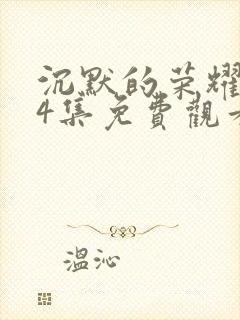 沉默的荣耀
4集免費觀看
溫沁